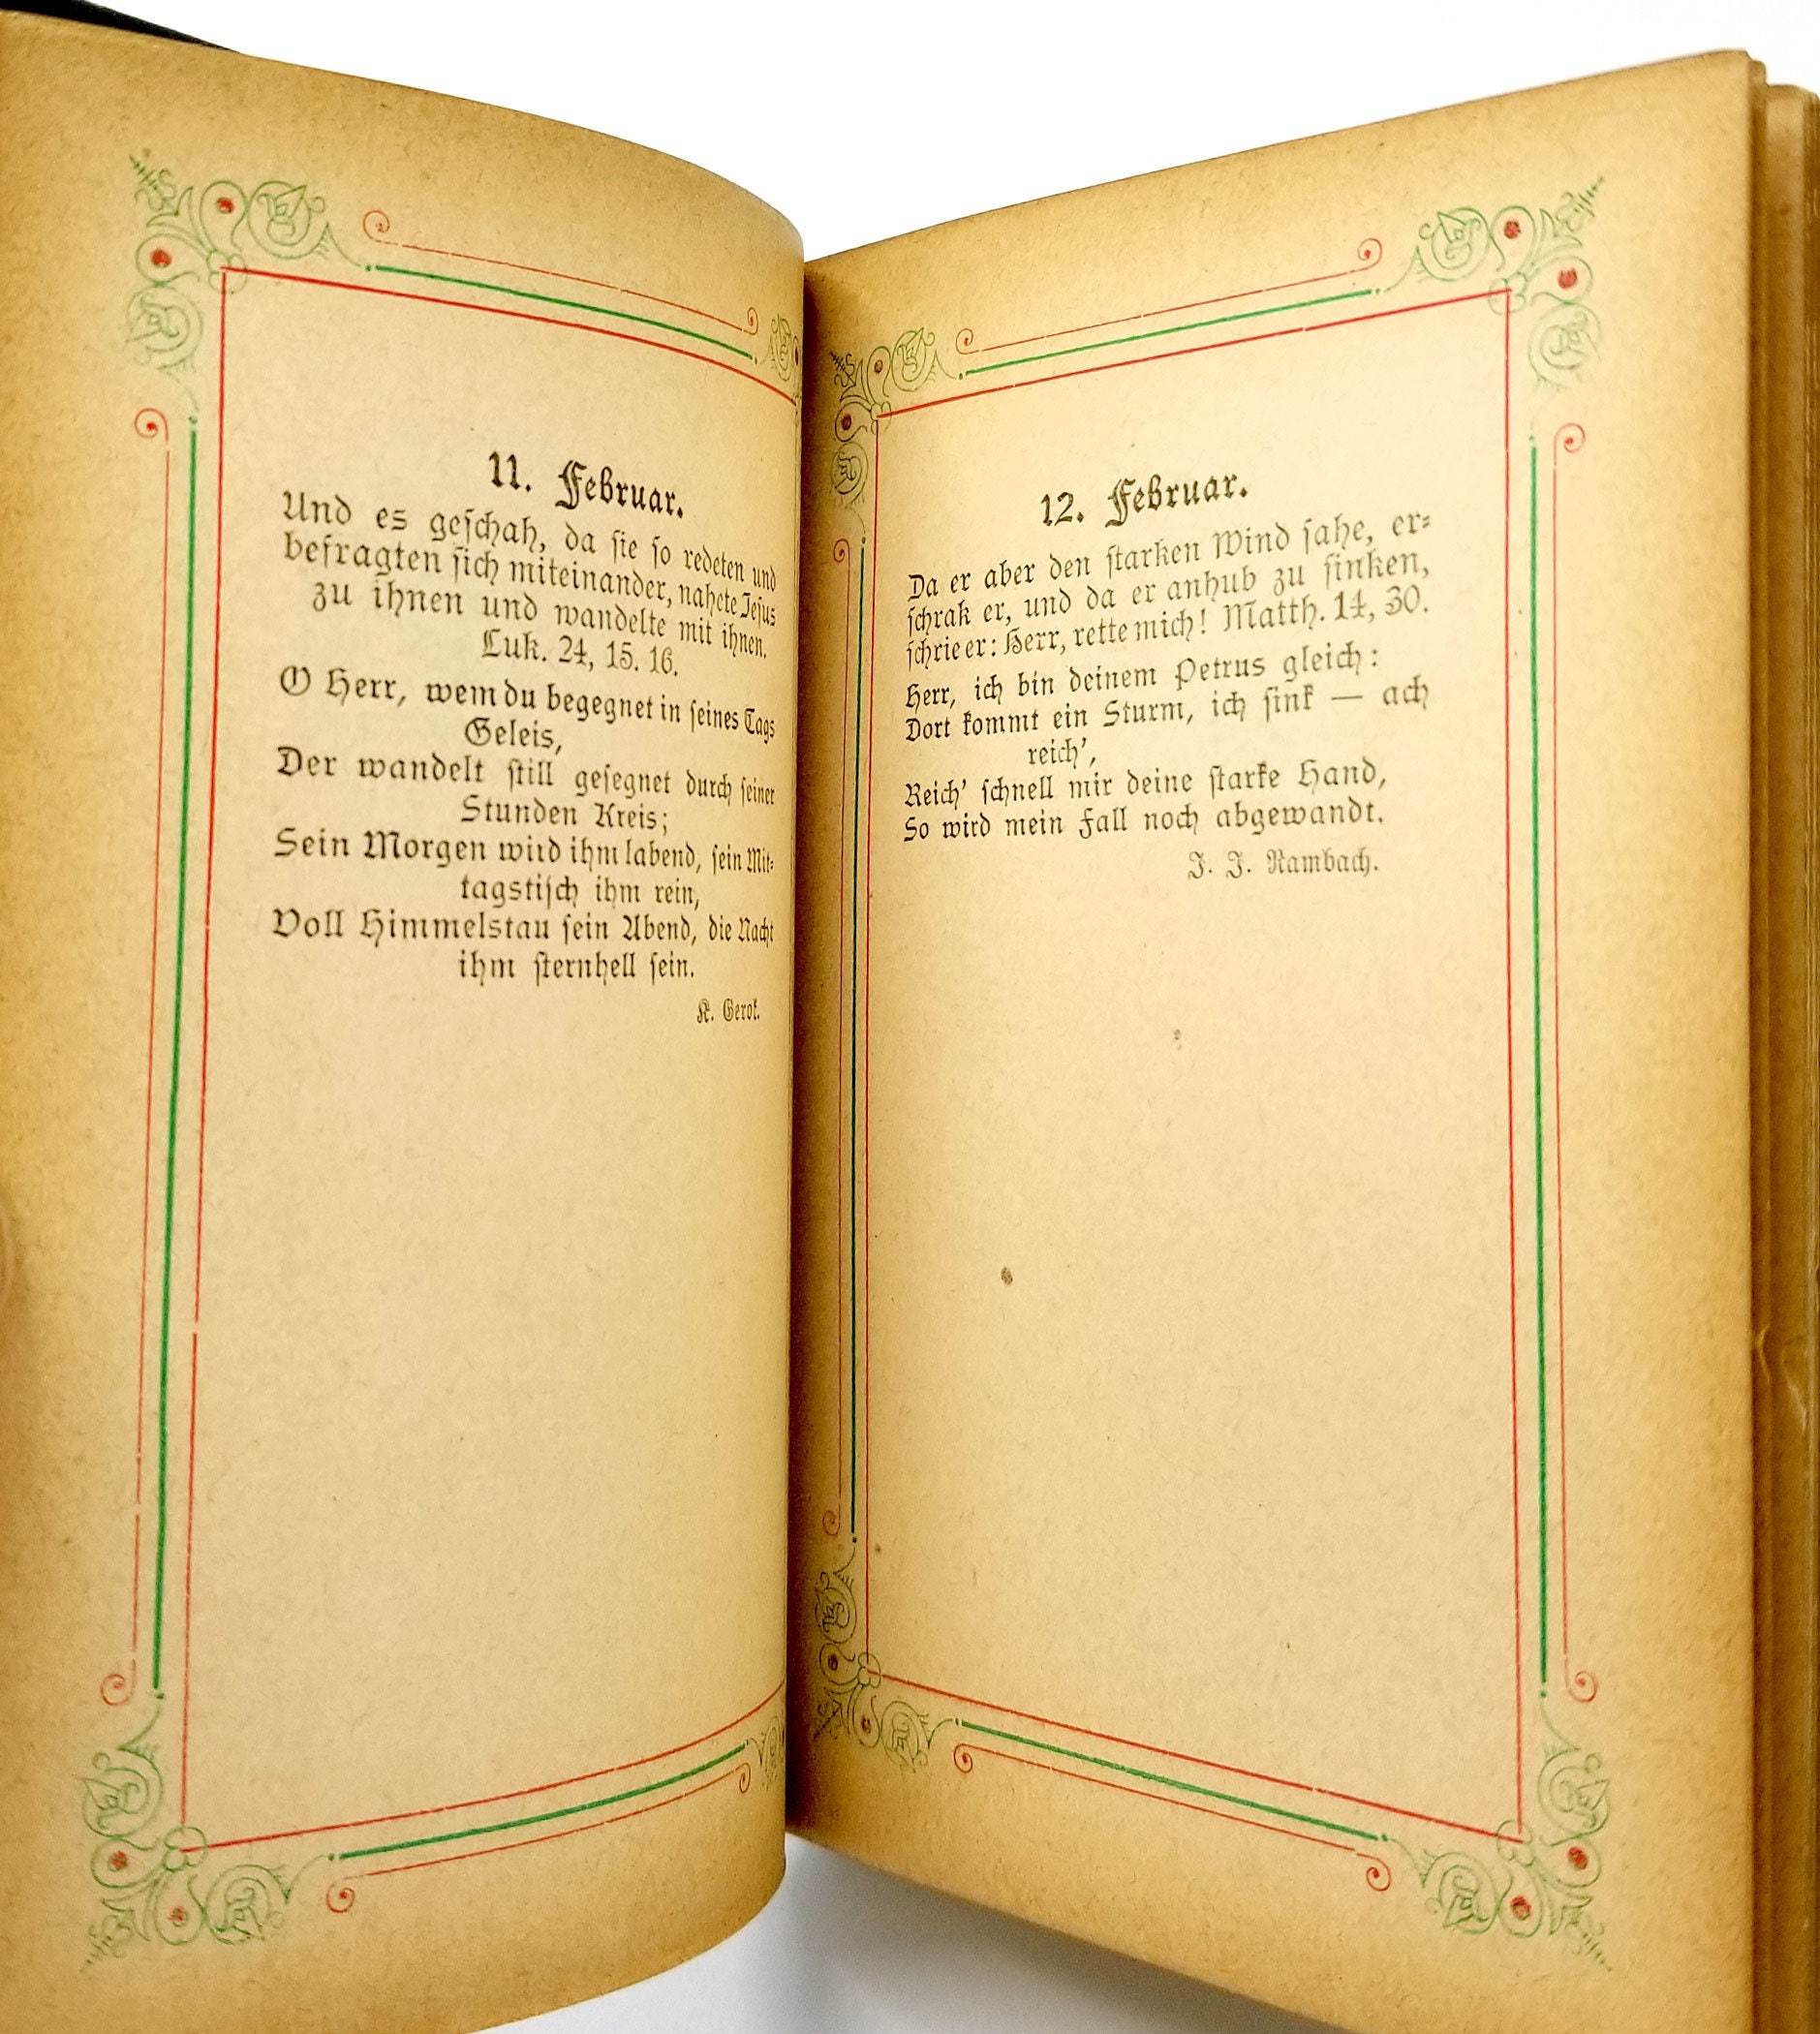 11. Februar.
Und es geſchah, da ſie ſo redeten und
befragten ſich miteinander, nahete Jeſus
zu ihnen und wandelte mit ihnen.
Luk. 24, 15. 16.
O Herr, wem du begegnet in ſeines Tags
Geleis,
Der wandelt ſtill geſegnet durch ſeiner
Stunden Kreis;
Sein Morgen wird ihm labend, ſein Mit⸗
tagstiſch ihm rein,
Voll Himmelstau ſein Abend, die Nacht
ihm ſternhell ſein.
K. Gerok.
12. Februar.
Da er aber den ſtarken Wind ſahe, er⸗
ſchrak er, und da er anhub zu ſinken,
ſchrie er: Herr, rette mich! Matth. 14, 30.
Herr, ich bin deinem Petrus gleich:
Dort kommt ein Sturm, ich ſink — ach
reich',
Reich' ſchnell mir deine ſtarke Hand,
So wird mein Fall noch abgewandt.
J. J. Rambach.